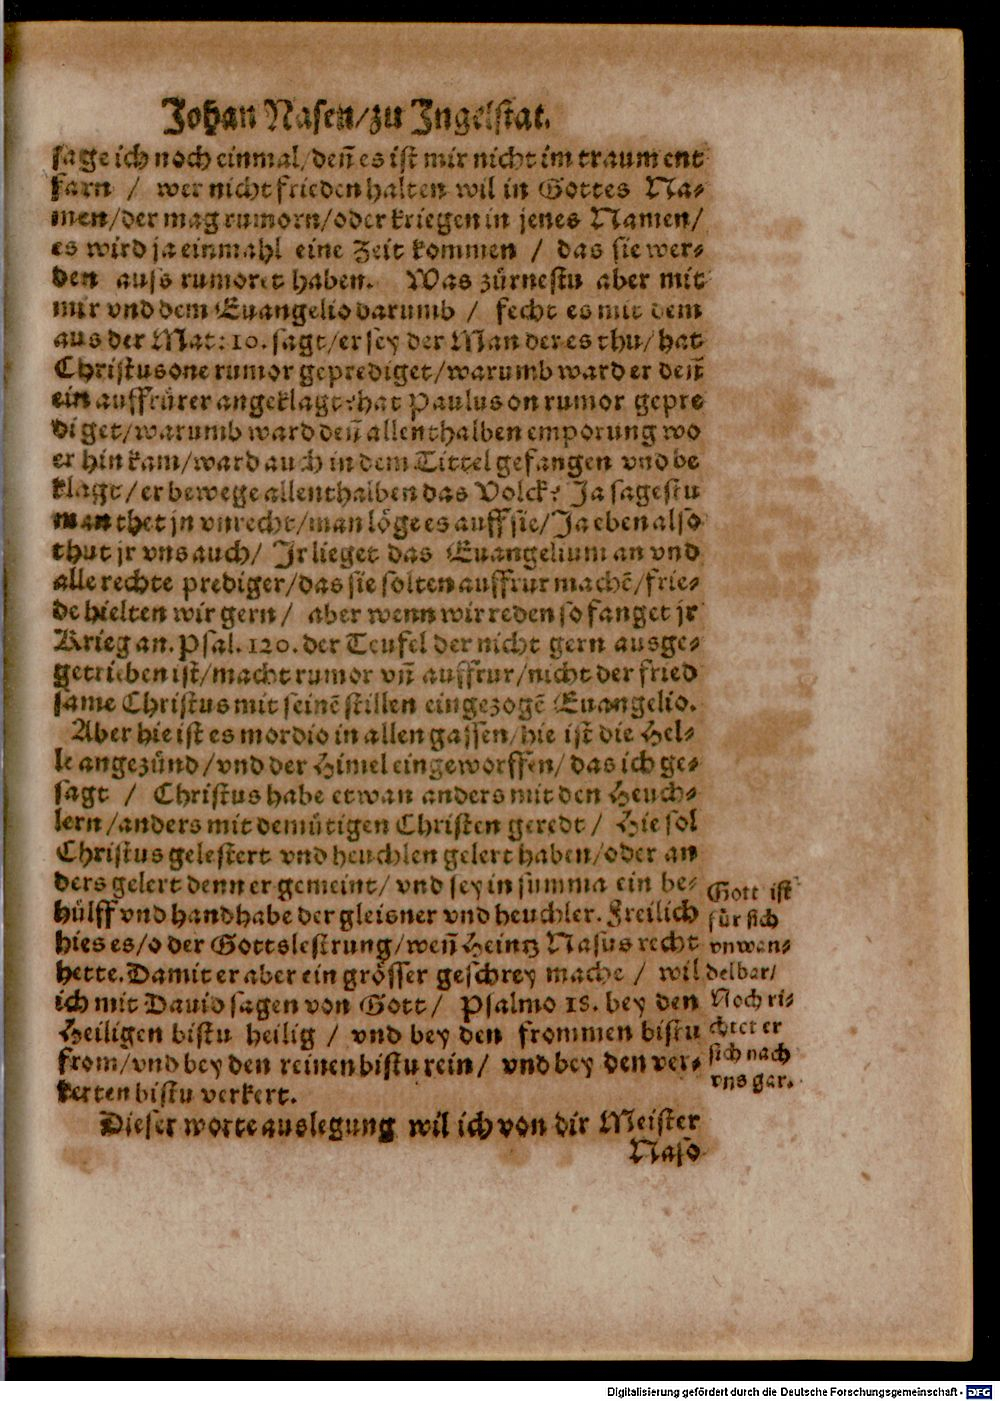 Johan Nasen/zu Ingelstat.
sage ich noch einmal/deñ es ist mir nicht im traum ent
farn / wer nicht frieden halten wil in Gottes Na-
men/der mag rumorn/oder kriegen in jenes Namen/
es wird ja einmahl eine Zeit kommen / das sie wer-
den auss rumoret haben. Was zürnestu aber mit
mir vnd dem Euangelio darumb / fecht es mit dem
aus der Mat: 10. sagt/er sey der Man der es thu/hat
Christus one rumor geprediget/warumb ward er deñ
ein auffrürer angeklagt? hat Paulus on rumor gepre
diget/warumb ward deñ allenthalben emporung wo
er hin kam/ward auch in dem Tittel gefangen vnd be
klagt/er bewege allenthalben das Volck? Ja sagestu
man thet jn vnrecht/man löge es auff sie/Ja eben also
thut jr vns auch/ Ir lieget das Euangelium an vnd
alle rechte prediger/das sie solten auffrur machē/frie-
de hielten wir gern/ aber wenn wir reden so fanget jr
Krieg an. Psal. 120. der Teufel der nicht gern ausge-
getrieben ist/macht rumor vñ auffrur/nicht der fried
same Christus mit seinē stillen eingezogē Euangelio.
Aber hie ist es mordio in allen gassen/hie ist die Hel-
le angezünd/vnd der Himel eingeworffen/das ich ge-
sagt / Christus habe etwan anders mit den Heuch-
lern/anders mit demütigen Christen geredt/ Hie sol
Christus gelestert vnd heuchlen gelert haben/oder an
ders gelert denn er gemeint/ vnd sey in summa ein be-
hülff vnd handhabe der gleisner vnd heuchler. Freilich
hies es/o der Gottslestrung/weñ Heintz Nasus recht
hette. Damit er aber ein grösser geschrey mache / wil
ich mit Dauid sagen von Gott/ Psalmo 18. bey den
Heiligen bistu heilig / vnd bey den frommen bistu
from/vnd bey den reinen bistu rein/ vnd bey den ver-
kerten bistu verkert.
Dieser worte auslegung wil ich von dir Meister
Naso
Gott ist
für sich
vnwan-
delbar/
Noch ri-
chtet er
sich nach
vns gar.
Digitalisierung gefördert durch die Deutsche Forschungsgemeinschaft - DFG